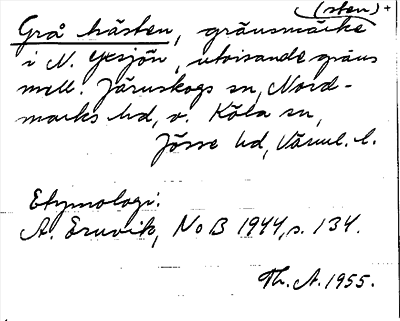 (sten) +
Grå hästen, gränsmärke
i N. Ytsjön, utvisande gräns
mell. Järnskogs sn, Nord-
marks hd, o. Köla sn,
Jösse hd, Värml. l.
Etymologi:
A. Ernvik, NoB 1944, s. 134.
Th. A. 1955.